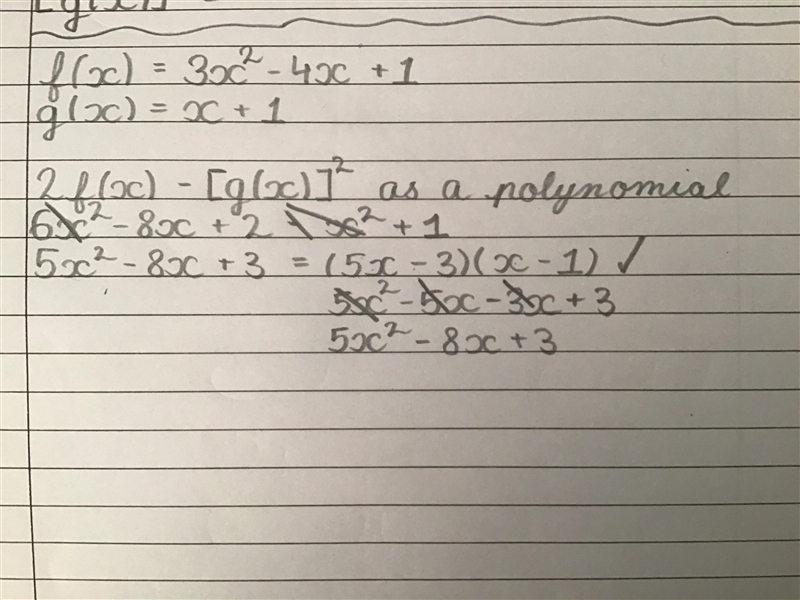 f(x) = 3x² - 4x + 1
g(x) = x + 1
2f(x) - [g(x)]² as a polynomial
6x² - 8x + 2 - x² + 1
5x² - 8x + 3 = (5x - 3)(x - 1) ✓
5x² - 5x - 3x + 3
5x² - 8x + 3